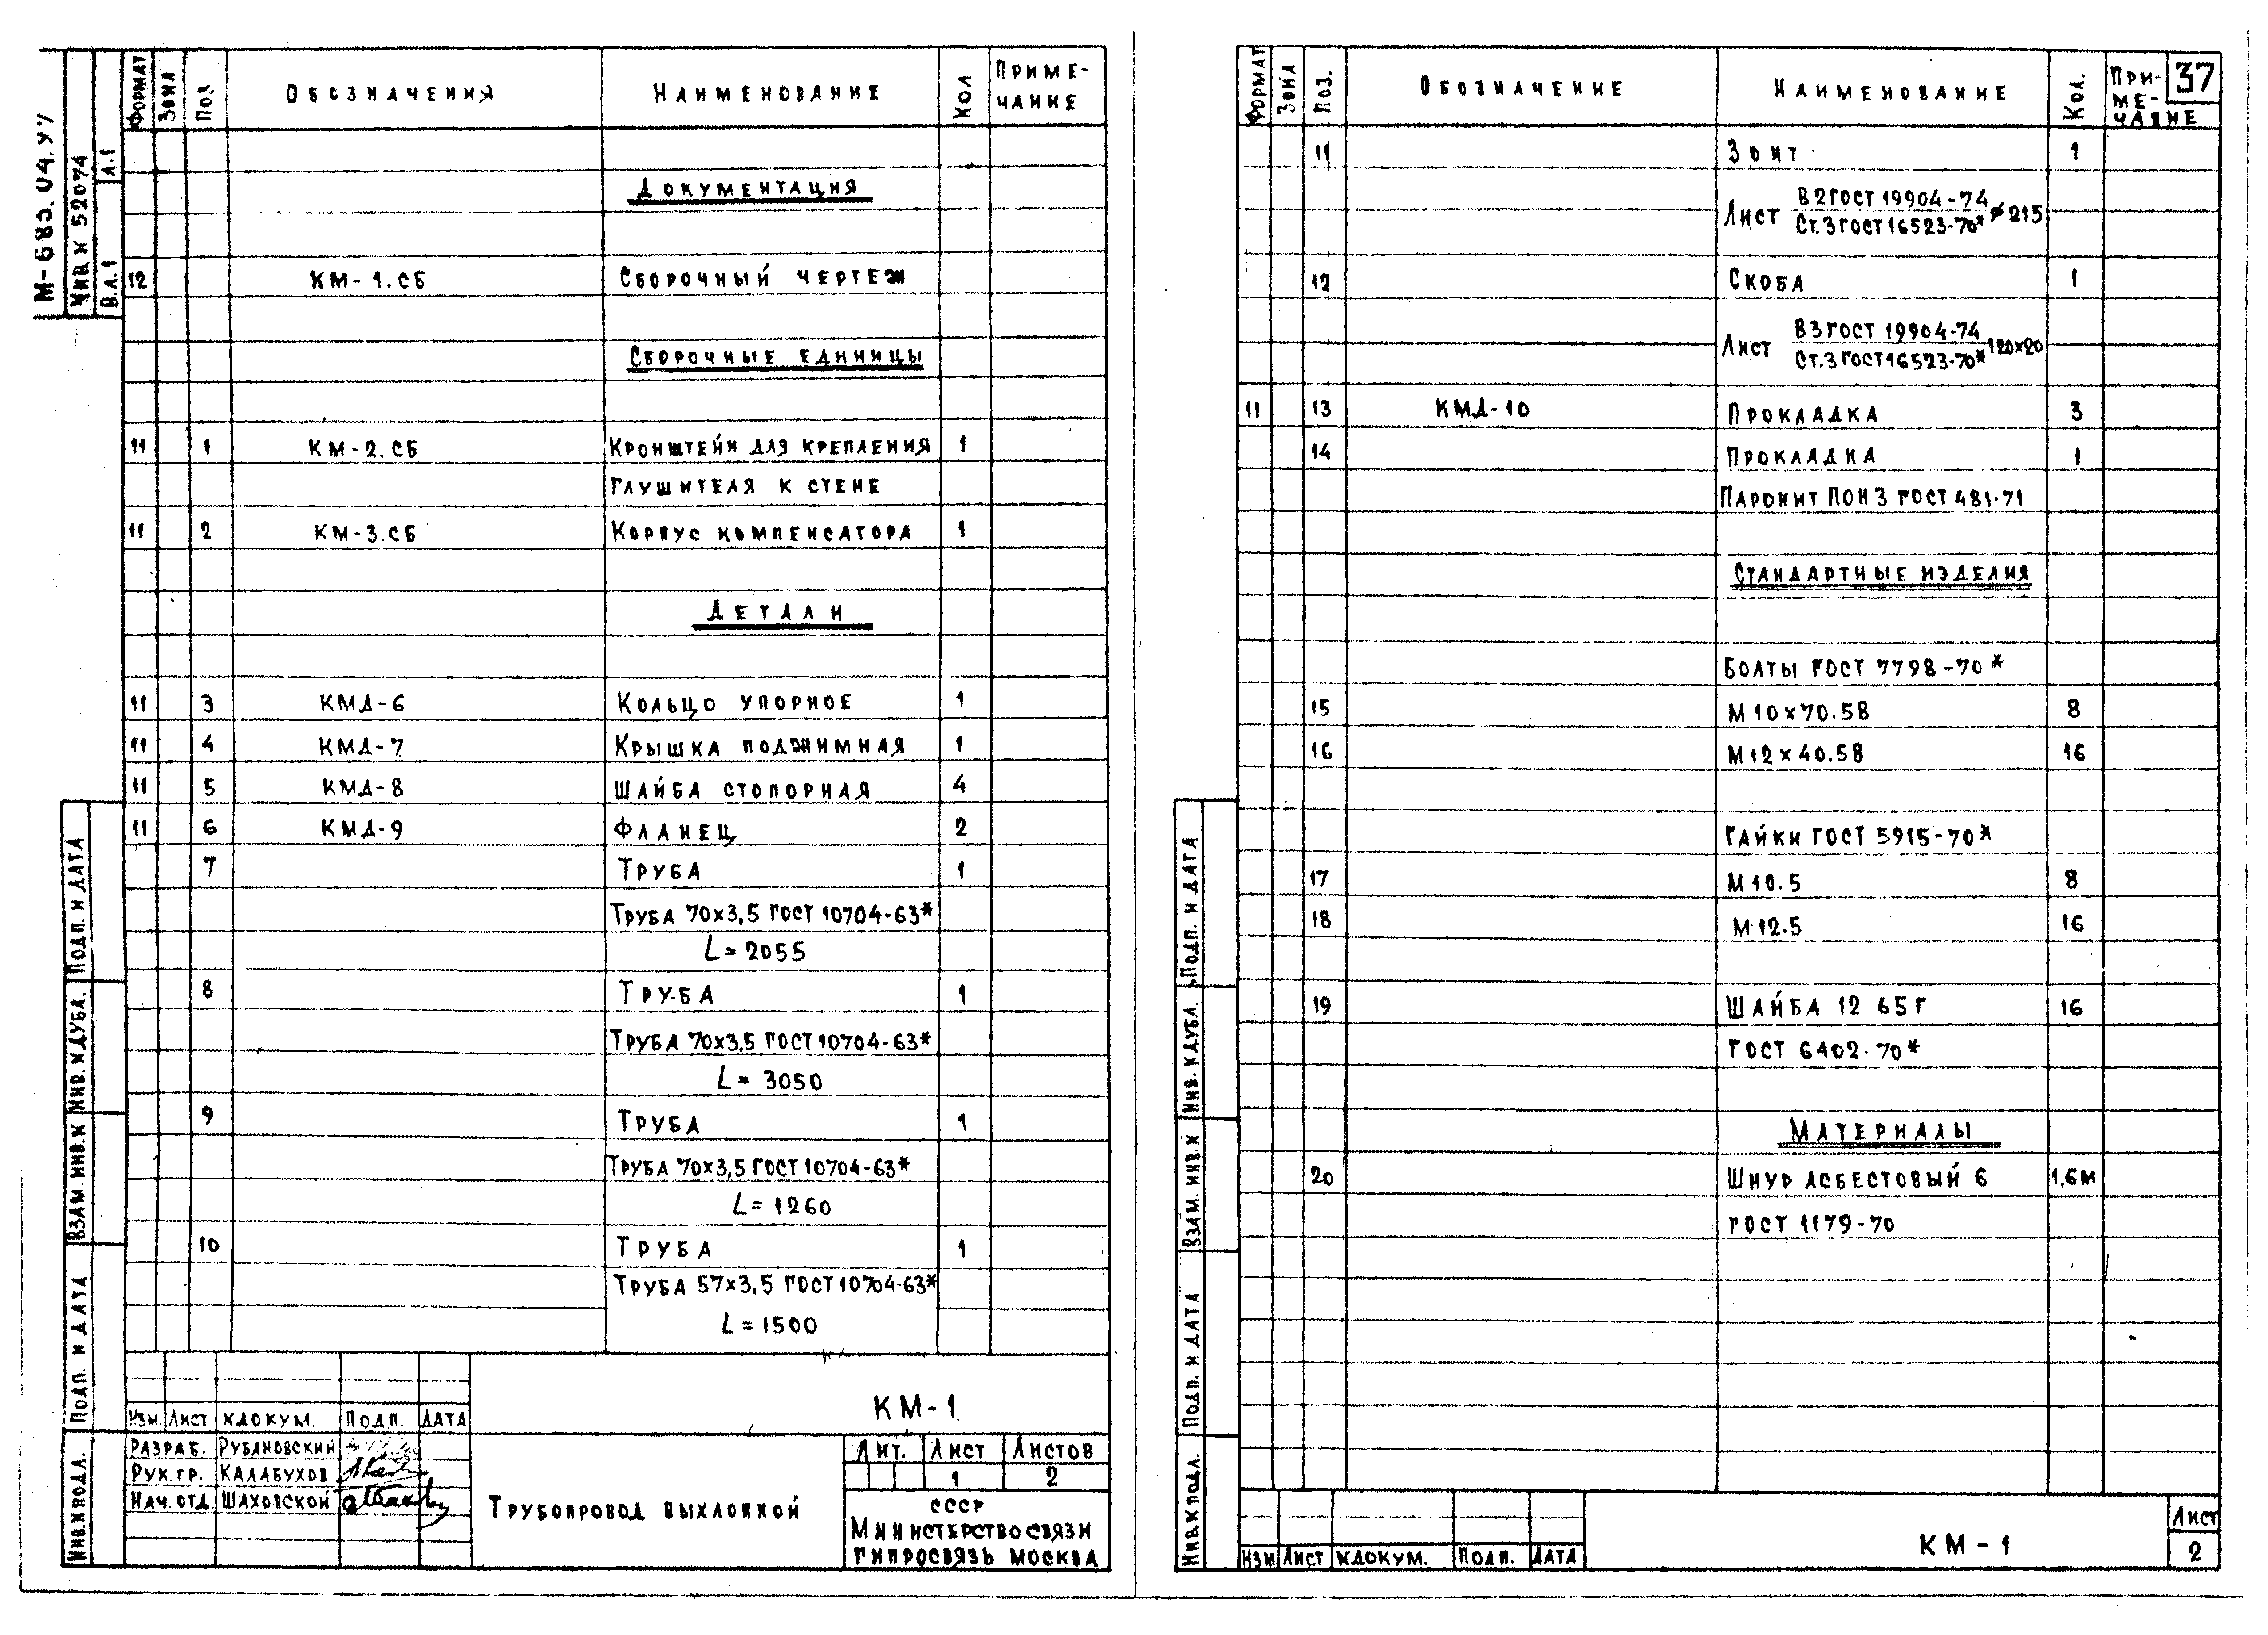 М-685.04.97
ИНВ.№ 52074
В.А.1 А.1
ФОРМАТ ЗОНА ПОЗ ОБОЗНАЧЕНИЯ НАИМЕНОВАНИЕ КОЛ ПРИМЕ-
ЧАНИЕ
ДОКУМЕНТАЦИЯ
12 КМ-1.СБ СБОРОЧНЫЙ ЧЕРТЕЖ
СБОРОЧНЫЕ ЕДИНИЦЫ
11 1 КМ-2.СБ КРОНШТЕЙН ДЛЯ КРЕПЛЕНИЯ 1
ГЛУШИТЕЛЯ К СТЕНЕ
11 2 КМ-3.СБ КОРПУС КОМПЕНСАТОРА 1
ДЕТАЛИ
11 3 КМД-6 КОЛЬЦО УПОРНОЕ 1
11 4 КМД-7 КРЫШКА ПОДЖИМНАЯ 1
11 5 КМД-8 ШАЙБА СТОПОРНАЯ 4
11 6 КМД-9 ФЛАНЕЦ 2
7 ТРУБА 1
ТРУБА 70×3,5 ГОСТ 10704-63*
L=2055
8 ТРУБА 1
ТРУБА 70×3,5 ГОСТ 10704-63*
L=3050
9 ТРУБА 1
ТРУБА 70×3,5 ГОСТ 10704-63*
L=1260
10 ТРУБА 1
ТРУБА 57×3,5 ГОСТ 10704-63*
L=1500
ИНВ.№ПОДЛ. ПОДП. И ДАТА ВЗАМ. ИНВ.№ ИНВ.№ДУБЛ. ПОДП. И ДАТА
КМ-1
ИЗМ. ЛИСТ №ДОКУМ. ПОДП. ДАТА
РАЗРАБ. РУБАНОВСКИЙ
РУК.ГР. КАЛАБУХОВ
НАЧ.ОТД ШАХОВСКОЙ
ТРУБОПРОВОД ВЫХЛОПНОЙ
ЛИТ. ЛИСТ ЛИСТОВ
1 2
СССР
МИНИСТЕРСТВО СВЯЗИ
ГИПРОСВЯЗЬ МОСКВА
37
ФОРМАТ ЗОНА ПОЗ. ОБОЗНАЧЕНИЕ НАИМЕНОВАНИЕ КОЛ. ПРИ-
МЕ-
ЧАНИЕ
11 ЗОНТ 1
ЛИСТ В2 ГОСТ 19904-74
Ст.3 ГОСТ 16523-70* ⌀215
12 СКОБА 1
ЛИСТ В3 ГОСТ 19904-74
Ст.3 ГОСТ 16523-70* 120×20
11 13 КМД-10 ПРОКЛАДКА 3
14 ПРОКЛАДКА 1
ПАРОНИТ ПОН 3 ГОСТ 481-71
СТАНДАРТНЫЕ ИЗДЕЛИЯ
БОЛТЫ ГОСТ 7798-70*
15 М10×70.58 8
16 М12×40.58 16
ГАЙКИ ГОСТ 5915-70*
17 М10.5 8
18 М12.5 16
19 ШАЙБА 12 65Г 16
ГОСТ 6402-70*
МАТЕРИАЛЫ
20 ШНУР АСБЕСТОВЫЙ 6 1,6М
ГОСТ 1179-70
ИНВ.№ПОДЛ. ПОДП. И ДАТА ВЗАМ. ИНВ.№ ИНВ.№ДУБЛ. ПОДП. И ДАТА
ИЗМ ЛИСТ №ДОКУМ. ПОДП. ДАТА
КМ-1
ЛИСТ
2